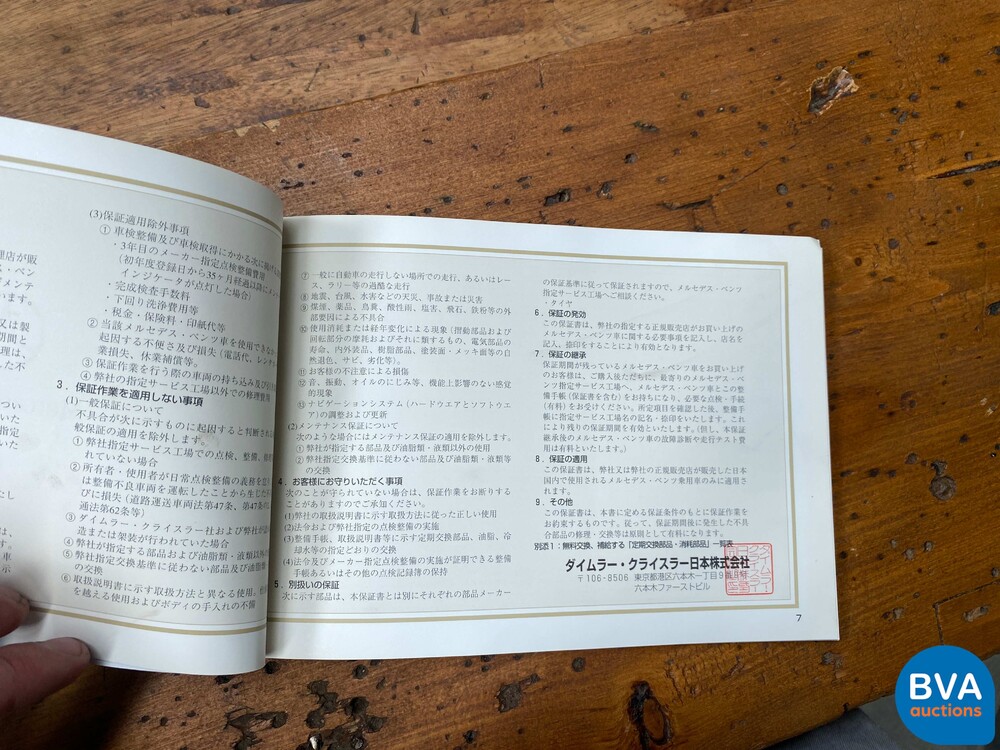 理店が販
ス・ベン
メンテ
います。
又は製
期間と
理は、
した不
(3)保証適用除外事項
①車検整備及び車検取得にかかる次に
・3年目のメーカー指定点検整備費用
(初年度登録日から35ヶ月経過以降にメン
インジケータが点灯した場合)
・完成検査手数料
・下回り洗浄費用等
・税金・保険料・印紙代等
②当該メルセデス・ベンツ車を使用できな
起因する不便さ及び損失(電話代、レンタ
業損失、休業補償等。
③保証作業を行う際の車両の持ち込み及び
④弊社の指定サービス工場以外での修理費用
3．保証作業を適用しない事項
(1)一般保証について
不具合が次に示すものに起因すると判断され
般保証の適用を除外します。
①弊社指定サービス工場での点検、整備、
れていない場合
②所有者・使用者が日常点検整備の義務を
は整備不良車両を運転したことから生じた
びに損失(道路運送車両法第47条、第47条の
通法第62条等)
③ダイムラー・クライスラー社および弊社が
造または架装が行われていた場合
④弊社が指定する部品および油脂類・液類以外
⑤弊社の指定交換基準に従わない部品及び油脂類・
の交換
⑥取扱説明書に示す取扱方法と異なる使用。
を越える使用およびボディの手入れの不備
⑦一般に自動車の走行しない場所での走行、あるいはレー
ス、ラリー等の過酷な走行
⑧地震、台風、水害などの天災、事故または災害
⑨煤煙、薬品、鳥糞、酸性雨、塩害、飛石、鉄粉等の外
部要因による不具合
⑩使用消耗または経年変化による現象(摺動部品および
回転部分の摩耗およびそれに類するもの、電気部品の
寿命、内外装品、樹脂部品、塗装面・メッキ面等の自
然退色、サビ、劣化等)。
⑪お客様の不注意による損傷
⑫音、振動、オイルのにじみ等、機能上影響のない感覚
的現象
⑬ナビゲーションシステム(ハードウエアとソフトウエ
ア)の調整および更新
(2)メンテナンス保証について
次のような場合にはメンテナンス保証の適用を除外します。
①弊社が指定する部品及び油脂類・液類以外の使用
②弊社指定交換基準に従わない部品及び油脂類・液類等
の交換
4．お客様にお守りいただく事項
次のことが守られていない場合は、保証作業をお断りする
ことがありますのでご承知ください。
(1)弊社の取扱説明書に示す取扱方法に従った正しい使用
(2)法令および弊社指定の点検整備の実施
(3)整備手帳、取扱説明書等に示す定期交換部品、油脂、冷
却水等の指定どおりの交換
(4)法令及びメーカー指定点検整備の実施が証明できる整備
手帳あるいはその他の点検記録簿の保持
5．別扱いの保証
次に示す部品は、本保証書とは別にそれぞれの部品メーカー
の保証基準に従って保証されますので、メルセデス・ベンツ
指定サービス工場へご相談ください。
・タイヤ
6．保証の発効
この保証書は、弊社の指定する正規販売店がお買い上げの
メルセデス・ベンツ車に関する必要事項を記入し、店名を
記入、捺印をすることにより有効となります。
7．保証の継承
保証期間が残っているメルセデス・ベンツ車をお買い上げ
のお客様は、ご購入後ただちに、最寄りのメルセデス・ベ
ンツ指定サービス工場へ、メルセデス・ベンツ車とこの整
備手帳(保証書を含む)をお持ちになり、必要な点検・手続
(有料)をお受けください。所定項目を確認した後、整備手
帳に指定サービス工場名の記名・捺印をいたします。これ
により残りの保証期間を有効といたします。(但し、本保証
継承後のメルセデス・ベンツ車の故障診断や走行テスト費
用は有料といたします。)
8．保証の適用
この保証書は、弊社又は弊社の正規販売店が販売した日本
国内で使用されるメルセデス・ベンツ乗用車のみに適用さ
れます。
9．その他
この保証書は、本書に定める保証条件のもとに保証作業を
お約束するものです。従って、保証期間後に発生した不具
合部品の修理・交換等は原則として有料になります。
別添1：無料交換、補給する「定期交換部品・消耗部品」一覧表
ダイムラー・クライスラー日本株式会社
〒106-8506 東京都港区六本木一丁目9番9号
六本木ファーストビル
7
BVA
auctions